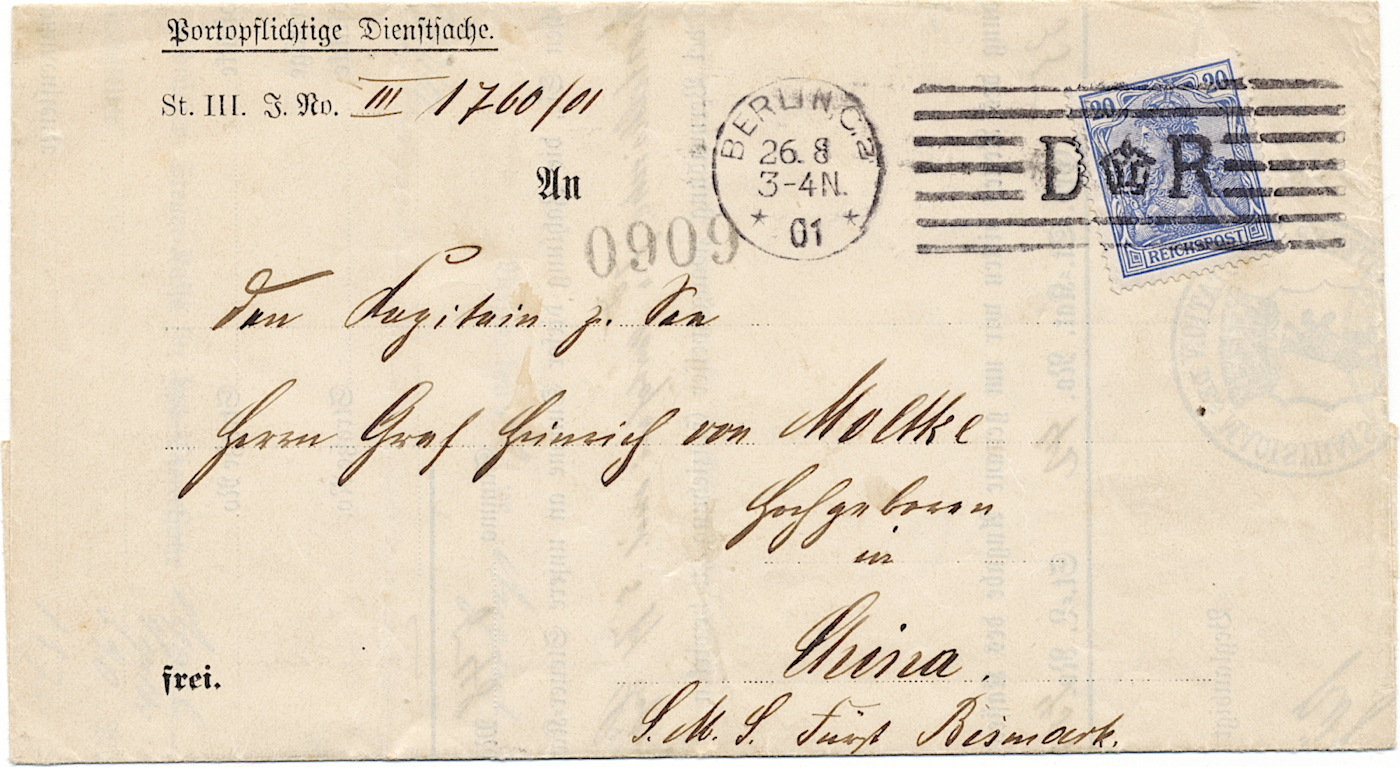 Portopflichtige Dienstsache.
St. III. J. No. III 1760/01
An
0909
den Kapitain z. See
Herrn Graf Heinrich von Moltke
Hochgeboren
in
China.
S. M. S. Fürst Bismark.
frei.
BERLIN, C. 2
26. 8
3-4N.
* 01 *
D R
20 20
REICHSPOST